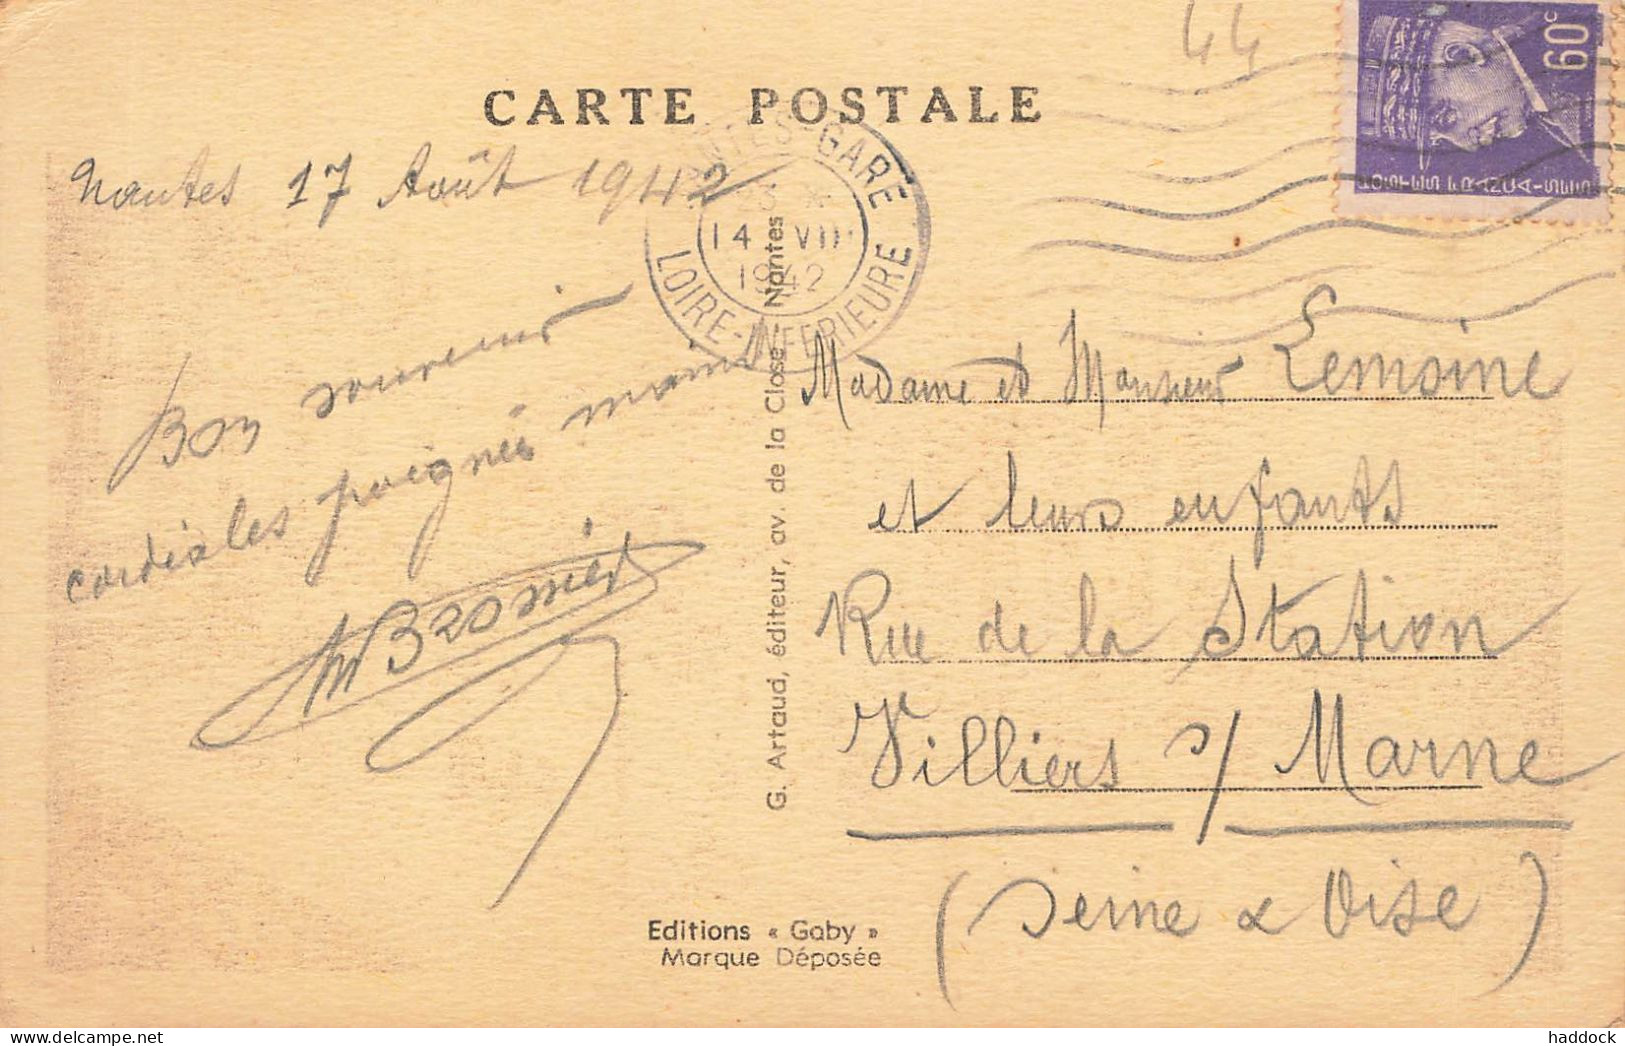 44
60c
POSTES FRANÇAISES
CARTE POSTALE
Nantes 17 Août 1942
NANTES-GARE
14 VIII
1942
LOIRE-INFERIEURE
Bon souvenir
cordiales poignées mains
G. Artaud, éditeur, av. de la Close, Nantes
Madame et Monsieur Lemoine
et leurs enfants
Rue de la Station
Villiers s/ Marne
(Seine & Oise)
Editions « Gaby »
Marque Déposée
haddock